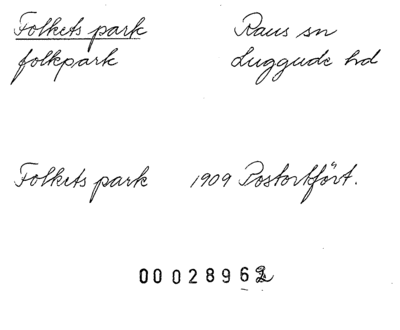 Folkets park Raus sn
folkpark Luggude hd
Folkets park 1909 Postortfört.
0002896